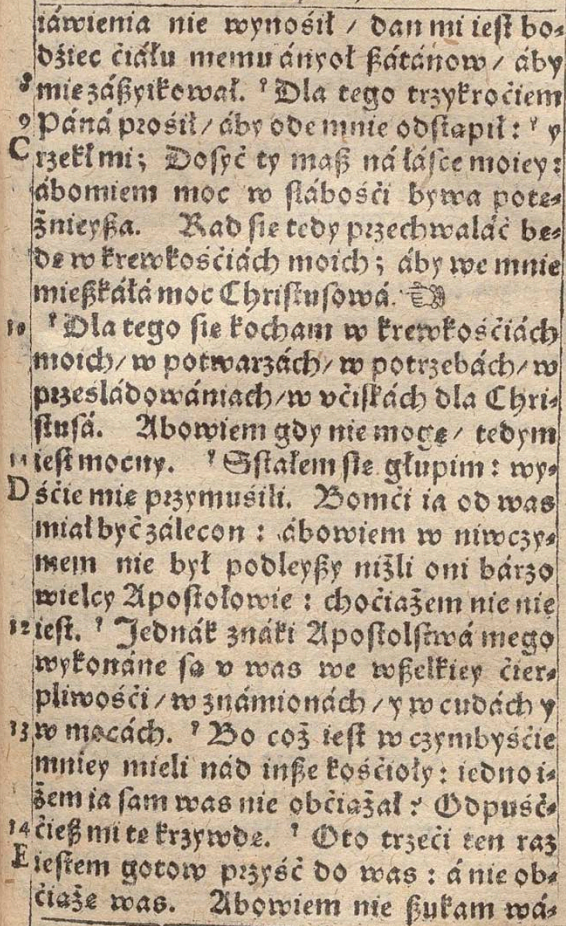 iáwienia nie wynośił / dan mi iest bo-
dźiec ćiáłu memu ányoł ßátánow / áby
8 mie záßyikował. ʾ Dla tego trzykroćiem
9 Páná prośił / áby ode mnie odstąpił : ʾ y
C rzekł mi ; Dosyć ty maß ná łásce moiey :
ábowiem moc w słábośći bywa potę-
żnieyßa. Rad się tedy przechwáláć bę-
dę w krewkośćiách moich ; áby we mnie
mießkáłá moc Christusowá. ☜
10 ʾ Dla tego się kocham w krewkośćiách
moich / w potwarzách / w potrzebách / w
prześládowániach / w vćiskách dla Chri-
stusá. Abowiem gdy nie mogę / tedym
11 iest mocny. ʾ Sstałem się głupim : wy-
D śćie mię przymuśili. Bomći ia od was
miał być zálecon : ábowiem w niwczy-
mem nie był podleyßy niżli oni bárzo
wielcy Apostołowie : choćiażem nie nie
12 iest. ʾ Jednák znáki Apostolstwá mego
wykonáne są v was we wßelkiey ćier-
pliwośći / w známionách / y w cudách y
13 w mocách. ʾ Bo coż iest w czymbyśćie
mniey mieli nád inße kośćioły : iedno i-
żem ia sam was nie obćiążał ? Odpuść-
14 ćieß mi tę krzywdę. ʾ Oto trzeći ten raz
E iestem gotow przyść do was : á nie ob-
ćiążę was. Abowiem nie ßukam wá-